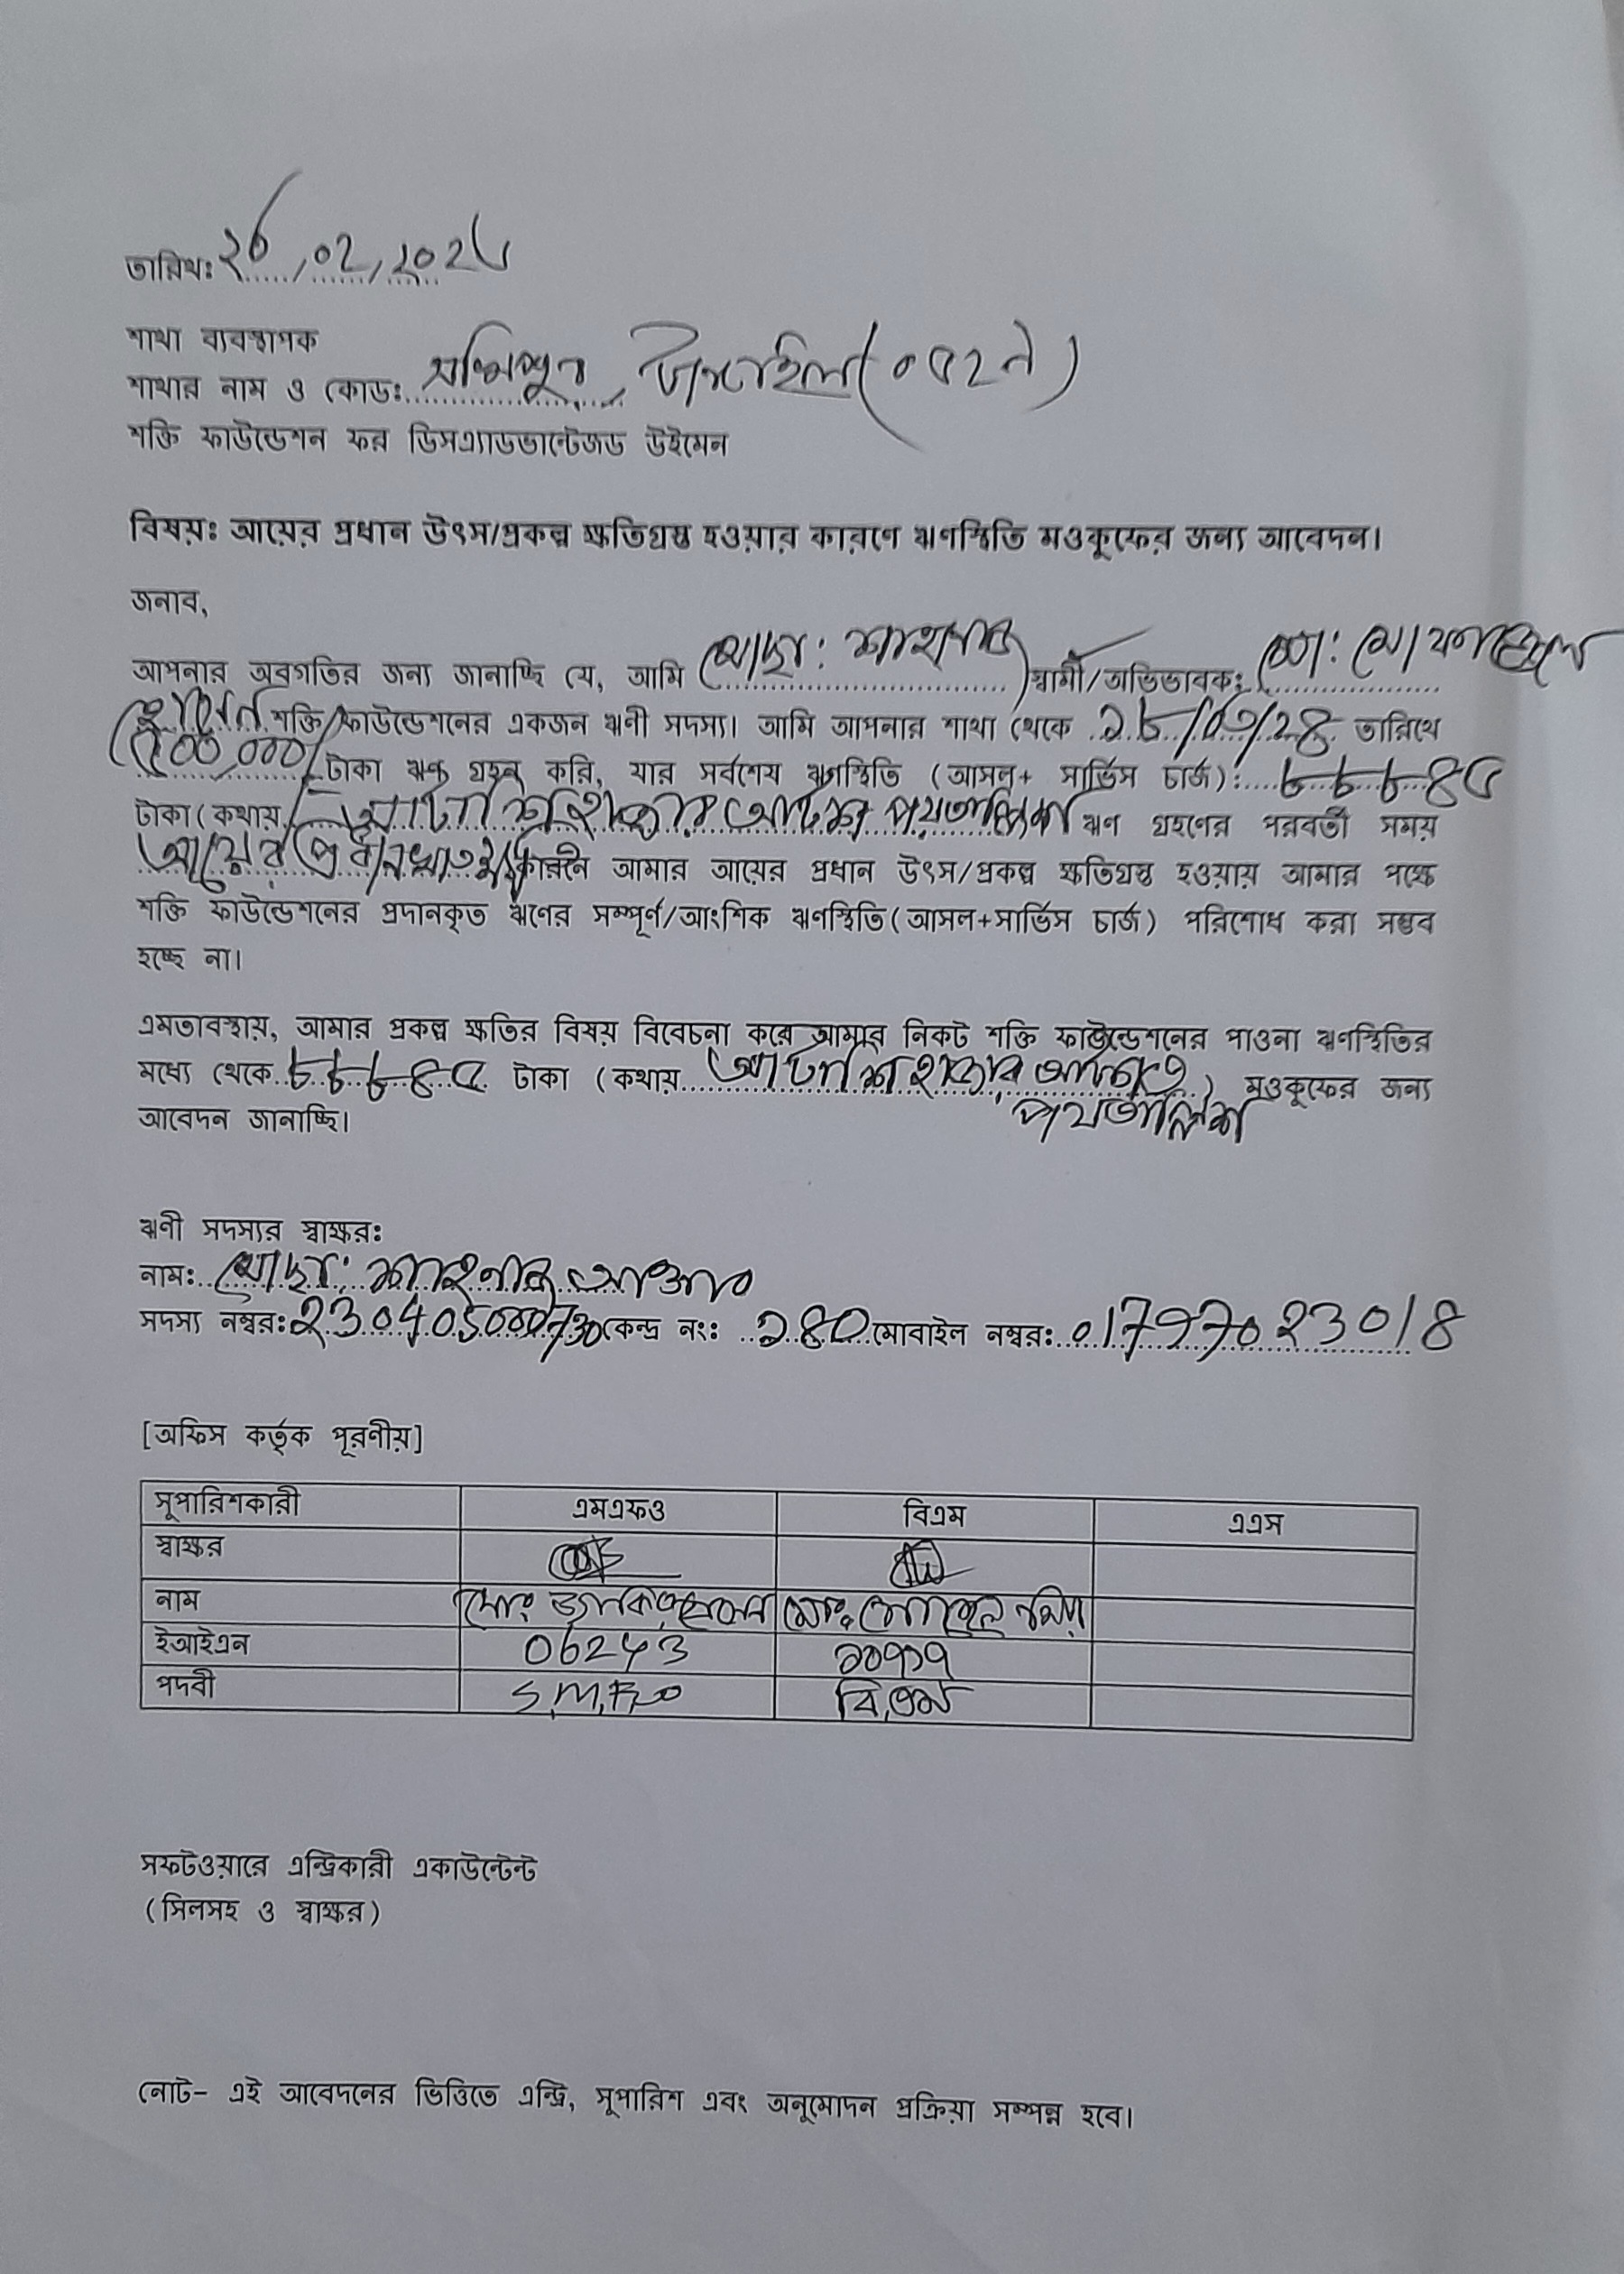 তারিখঃ ২৬/০২/২০২৫
শাখা ব্যবস্থাপক
শাখার নাম ও কোডঃ সখিপুর, টাঙ্গাইল(০৫২৭)
শক্তি ফাউন্ডেশন ফর ডিসএ্যাডভান্টেজড উইমেন
বিষয়ঃ আয়ের প্রধান উৎস/প্রকল্প ক্ষতিগ্রস্ত হওয়ার কারণে ঋণস্থিতি মওকুফের জন্য আবেদন।
জনাব,
আপনার অবগতির জন্য জানাচ্ছি যে, আমি মোছা: শাহনাজ স্বামী/অভিভাবক: মো:
শক্তি ফাউন্ডেশনের একজন ঋণী সদস্য। আমি আপনার শাখা থেকে তারিখে
টাকা ঋণ গ্রহন করি, যার সর্বশেষ ঋণস্থিতি (আসল+ সার্ভিস চার্জ): ৮৮৮৪৫
টাকা (কথায় আটাশি হাজার আটশত পয়তাল্লিশ ঋণ গ্রহণের পরবর্তী সময়
আয়ের প্রধান খাত কারনে আমার আয়ের প্রধান উৎস/প্রকল্প ক্ষতিগ্রস্ত হওয়ায় আমার পক্ষে
শক্তি ফাউন্ডেশনের প্রদানকৃত ঋণের সম্পূর্ণ/আংশিক ঋণস্থিতি(আসল+সার্ভিস চার্জ) পরিশোধ করা সম্ভব
হচ্ছে না।
এমতাবস্থায়, আমার প্রকল্প ক্ষতির বিষয় বিবেচনা করে আমার নিকট শক্তি ফাউন্ডেশনের পাওনা ঋণস্থিতির
মধ্যে থেকে ৮৮৮৪৫ টাকা (কথায় আটাশি হাজার আটশত ) মওকুফের জন্য
পয়তাল্লিশ
আবেদন জানাচ্ছি।
ঋণী সদস্যর স্বাক্ষরঃ
নামঃ মোছা: শাহনাজ আক্তার
সদস্য নম্বরঃ 23040500730 কেন্দ্র নংঃ ১৪০ মোবাইল নম্বরঃ 01797023018
[অফিস কর্তৃক পূরণীয়]
সুপারিশকারী এমএফও বিএম এএস
স্বাক্ষর
নাম মোঃ মোঃ সোহেল মিয়া
ইআইএন 06243 ১০৭১৭
পদবী S.M.F.O বি,এম
সফটওয়ারে এন্ট্রিকারী একাউন্টেন্ট
(সিলসহ ও স্বাক্ষর)
নোট- এই আবেদনের ভিত্তিতে এন্ট্রি, সুপারিশ এবং অনুমোদন প্রক্রিয়া সম্পন্ন হবে।